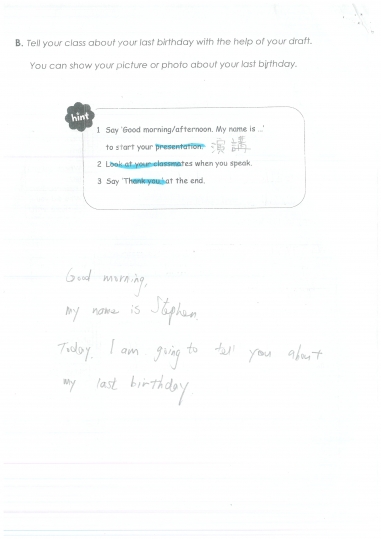 B. Tell your class about your last birthday with the help of your draft.
You can show your picture or photo about your last birthday.
hint
1 Say 'Good morning/afternoon. My name is ...'
to start your presentation. 演講
2 Look at your classmates when you speak.
3 Say 'Thank you.' at the end.
Good morning,
my name is Stephen.
Today, I am going to tell you about
my last birthday